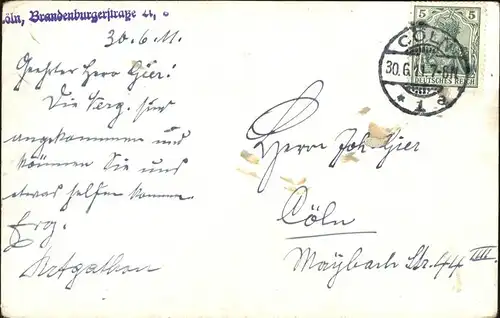 Cöln, Brandenburgerstraße
30.6.11.
Geehrter Herr Gier!
Die Verg. sind
angekommen und
können Sie uns
etwas helfen kommen.
Erg.
5 5
DEUTSCHES REICH
CÖLN
30.6.11.7-8
* 1 a
Herrn Joh. Gier
Cöln
Maybach Str. 44 IIII